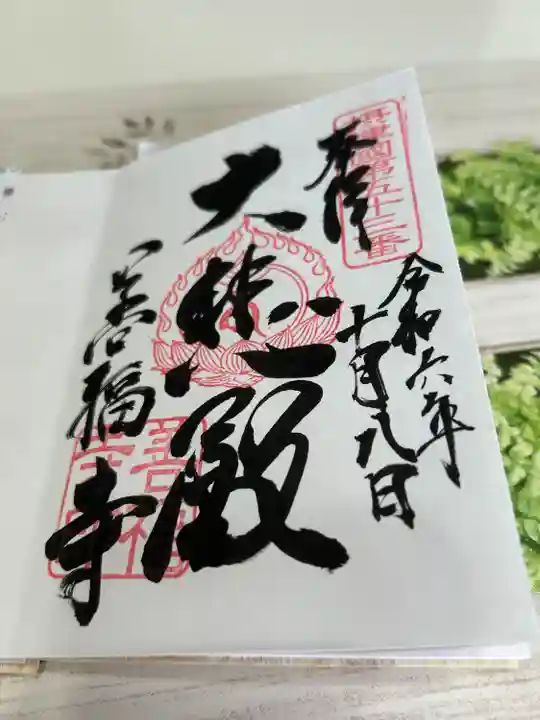 摂津国第五十三番
奉拝
令和六年
十月八日
大悲殿
善福寺
善福